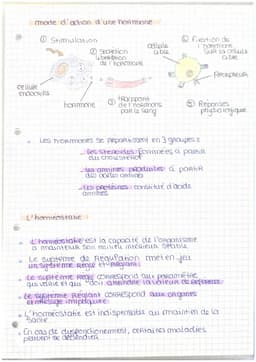 mode d'action d'une hormone
① Stimulation
② Sécrétion
libération
de l'hormone
cellule
cible
④ Fixation de
l'hormone
sur sa cellule
cible
Récepteur
cellule
endocrine
hormone
③ Transport
de l'hormone
par le sang
⑤ Réponses
physiologiques
Les hormones se répartissent en 3 groupes :
- Les stéroïdes formées à partir
du cholestérol
- Les amines produites à partir
des acides aminés
- Les protéines constitué d'acides
aminés
L'homéostatie
L'homéostatie est la capacité de l'organisme
à maintenir son milieu intérieur stable
Le système de Régulation met en jeu
un système Réglé et Réglant
Le système Réglé correspond au paramètre
qui varie et qui doit atteindre la valeur de référence
Le système Réglant correspond aux organes
et message impliqués
L'homéostatie est indispensable au maintien de la
santé
En cas de dysfonctionnement, certaines maladies
peuvent se déclencher